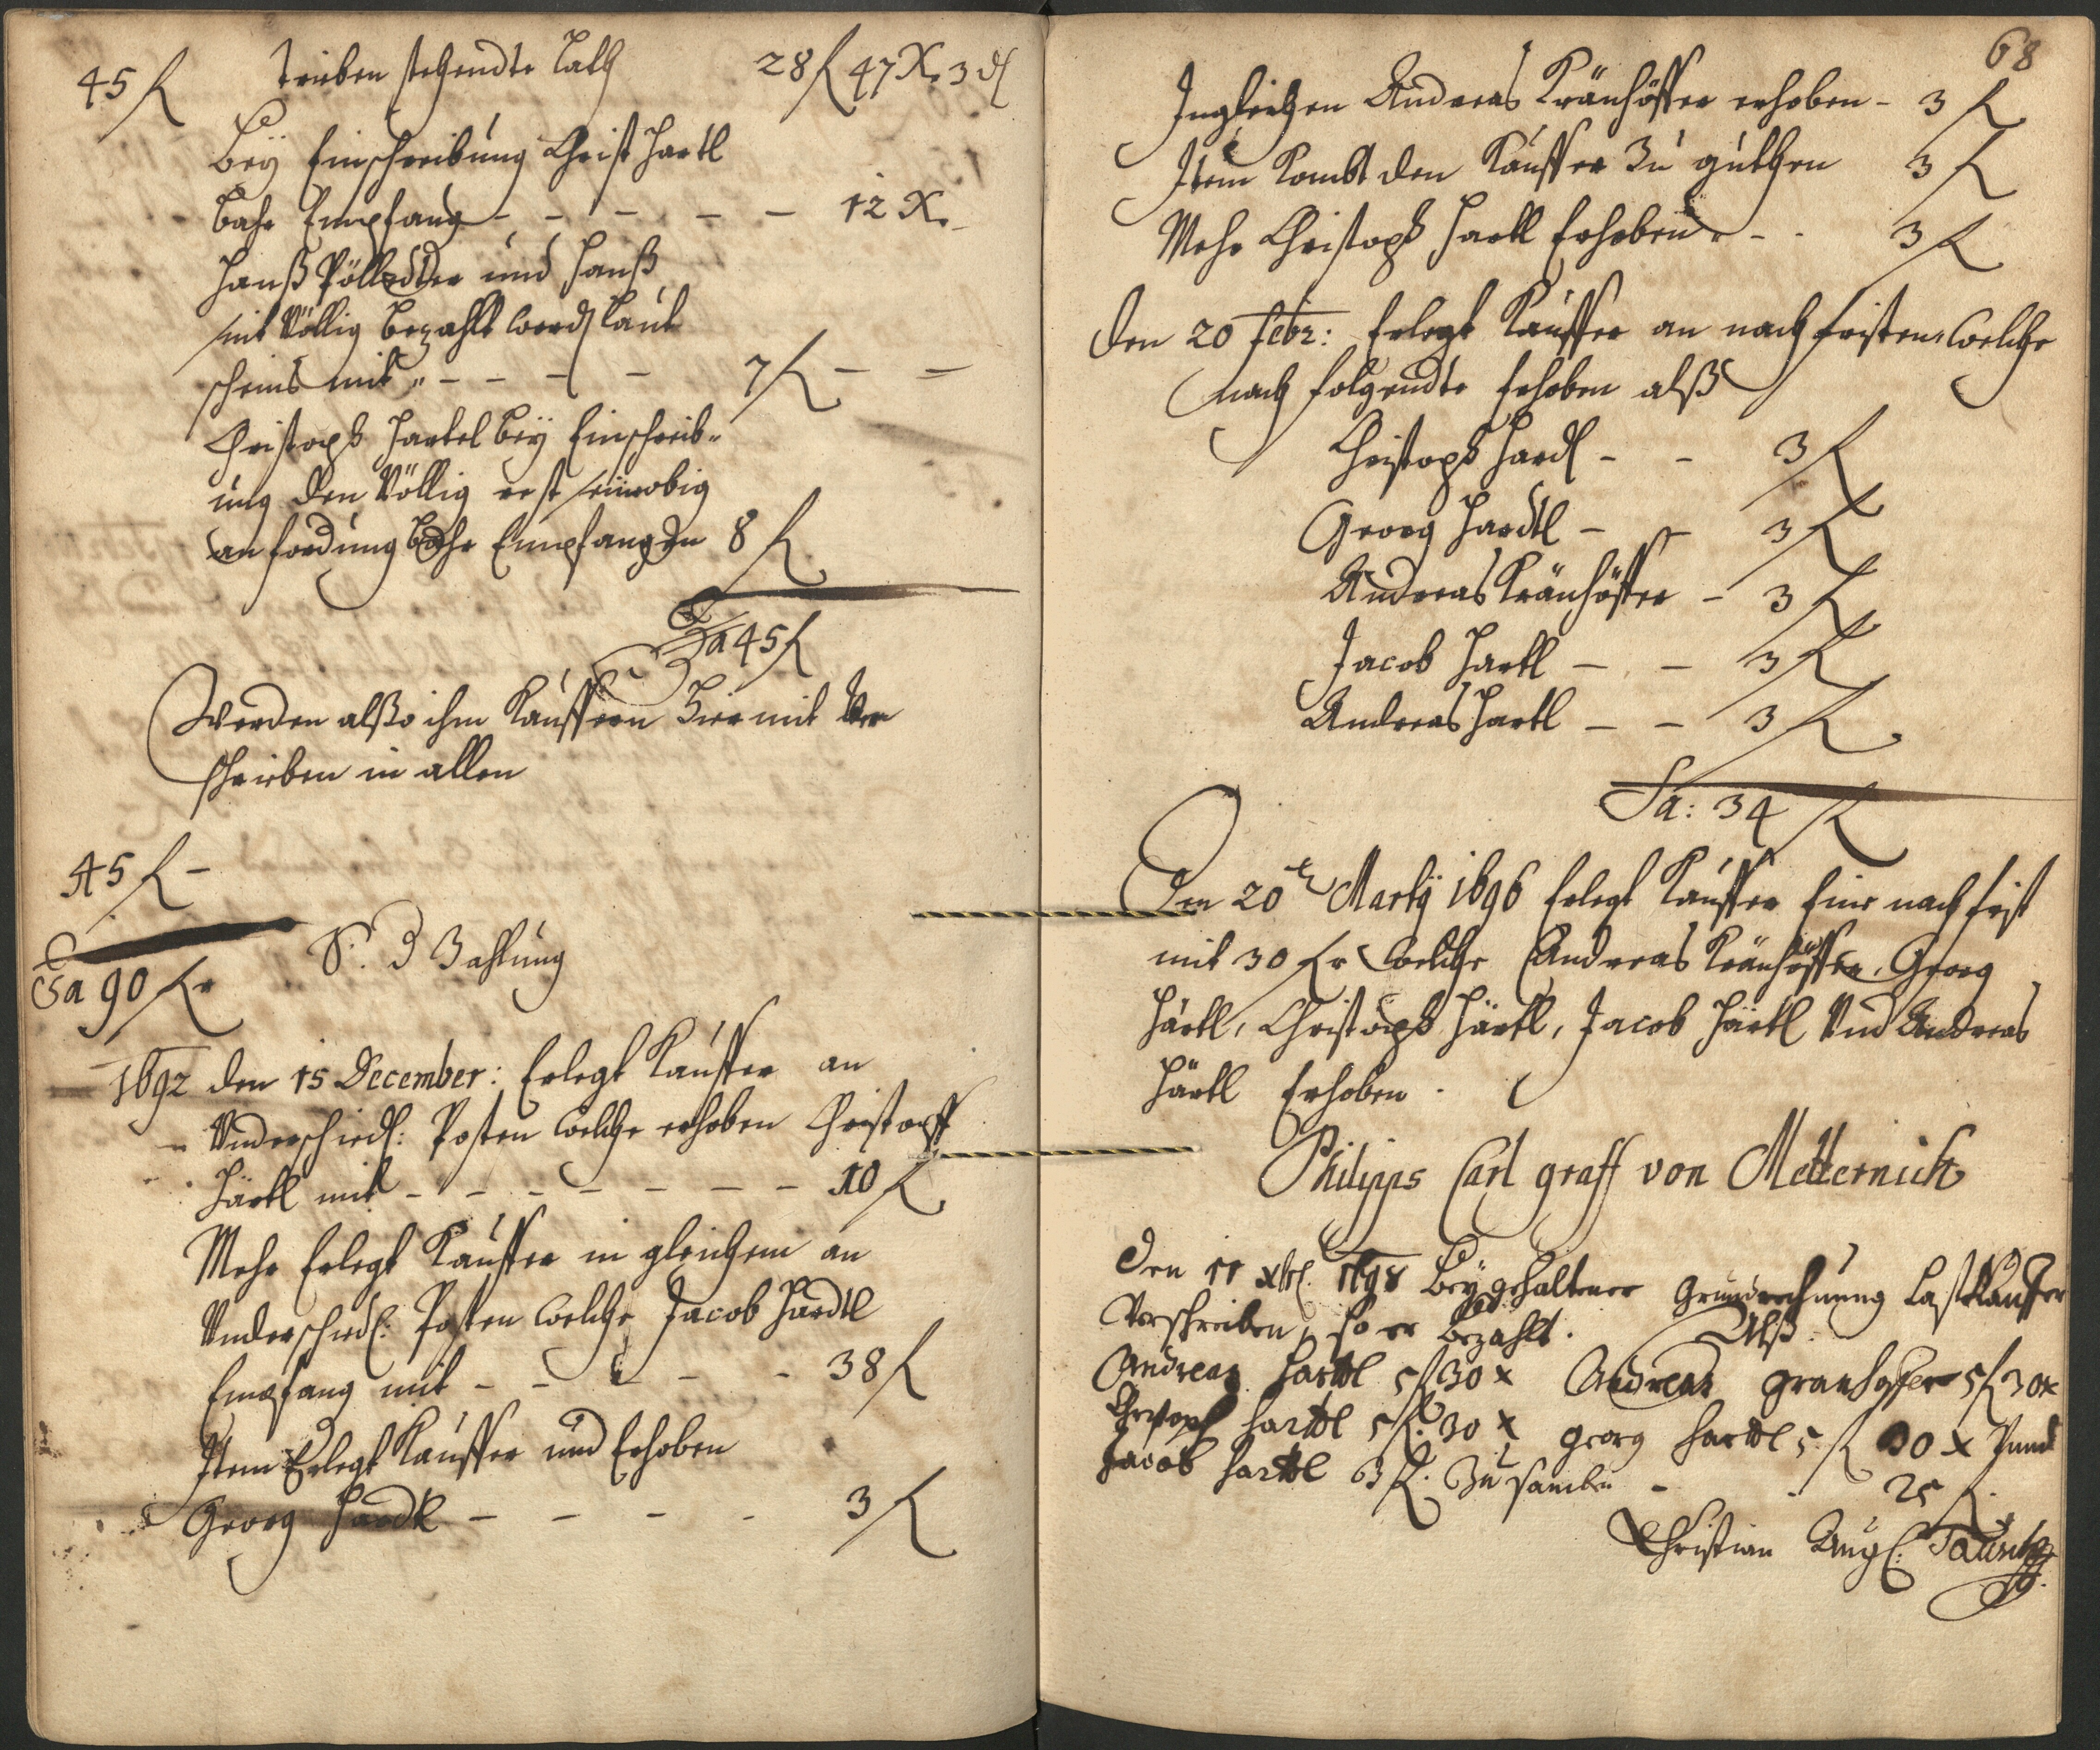 45 f
trüben stehendte Lath 28 f 47 X. 3 d
Bey Einschreibung Christ Hartl
bahr Empfang - - - - - 12 X.
Hanß Pölledter und Hanß
mit Völlig bezahlt werd laut
scheins mit - - - - 7 f - -
Christoph Hartel bey Einschreib-
ung den Völlig rest
an fordung bahr Empfangen 8 f
Sa 45 f
Werden alßo ihm Kauffern hiermit Ver
schrieben in allen
45 f -
Sa 90 f
S. Zahlung
1692 den 15 December: Erlegt Kauffer an
Underschiedl: Posten welche erhoben Christoff
Härtl mit - - - - - - - 10 f
Mehr Erlegt Kauffer in gleichem an
Underschiedl: Posten welche Jacob Hardtl
Empfang mit - - - - - 38 f
Item Erlegt Kauffer und Erhoben
Georg Hardtl - - - - 3 f
68
Ingleichen Andreas Kränhöffer erhoben - 3 f
Item Kombt den Kauffer Zu guthen 3 f
Mehr Christoph Hartl Erhoben - - 3 f
Den 20 Febr: Erlegt Kauffer an nachfristen welche
nach folgendte Erhoben alß
Christoph Hardl - - 3 f
Georg Hardtl - - 3 f
Andreas Kränhöffer - 3 f
Jacob Hartl - - 3 f
Andreas Hartl - - 3 f
Sa: 34 f
Den 20 Martÿ 1696 Erlegt Kauffer Eine nachfrist
mit 30 f welche Andreas Kränhöffer, Georg
Härtl, Christoph Härtl, Jacob Härtl Und Andreas
Härtl Erhoben.
Philipps Carl graff von Metternich
Den 11 xbr. 1698 Bey gehaltener grundrechnung Last Kauffer
Verschreiben, so er bezahlt. Alß
Andreas Harttl 5 f 30 x Andreas granhoffer 5 f 30 x
Christoph harttl 5 f. 30 x georg harttl 5 f 30 x Unnd
Jacob harttl 3 f. Zusamben - - 25 f.
Christian Aug: